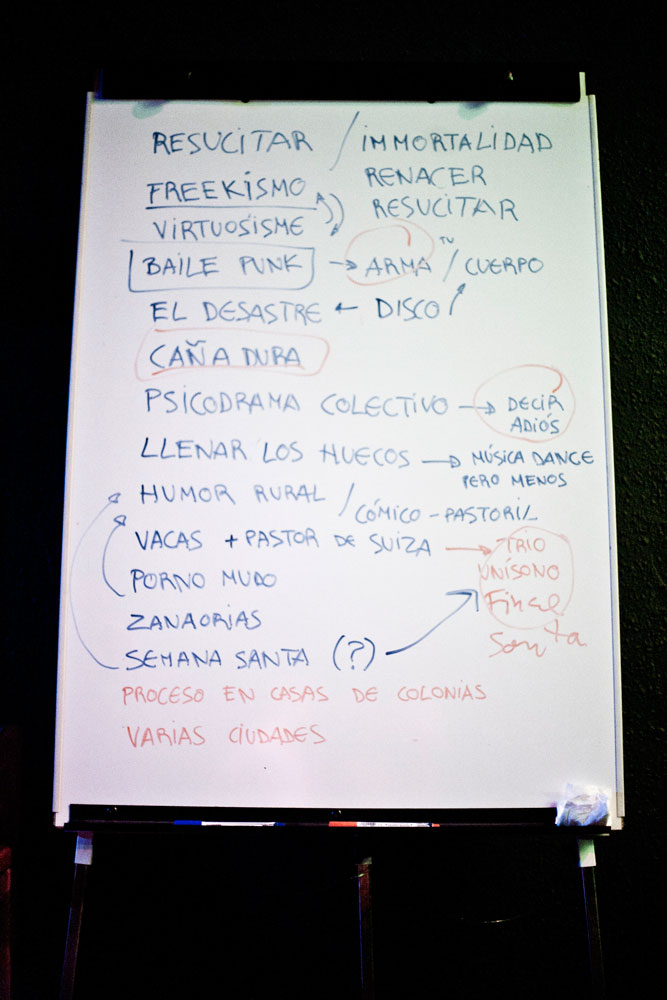 RESUCITAR / IMMORTALIDAD
RENACER
FREEKISMO
RESUCITAR
VIRTUOSISME
BAILE PUNK → ARMA / TU CUERPO
EL DESASTRE ← DISCO
CAÑA DURA
PSICODRAMA COLECTIVO → DECIR
ADIÓS
LLENAR LOS HUECOS → MÚSICA DANCE
PERO MENOS
HUMOR RURAL / CÓMICO - PASTORIL
VACAS + PASTOR DE SUIZA → TRIO
UNÍSONO
PORNO MUDO
Final
ZANAORIAS
Santa
SEMANA SANTA (?)
PROCESO EN CASAS DE COLONIAS
VARIAS CIUDADES